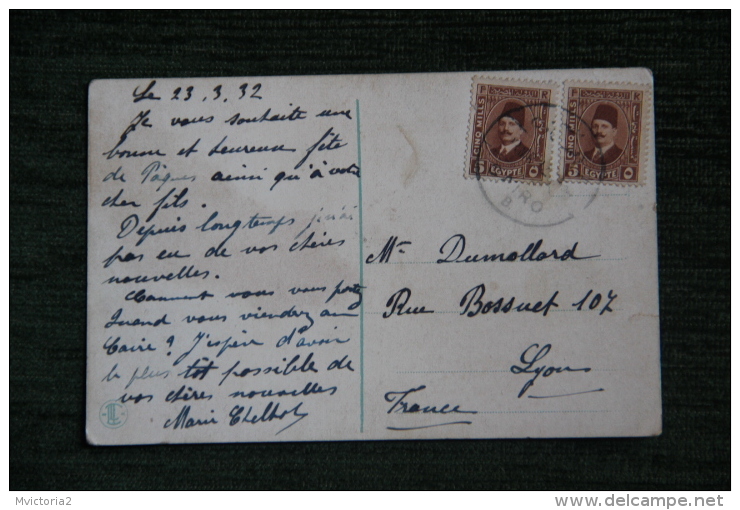 Le 23.3.32
Je vous souhaite une
bonne et heureuse fête
de Pâques ainsi qu'à votre
cher fils.
Depuis longtemps j'n'ai
pas eu de vos chères
nouvelles.
Comment vous vous portez
Quand vous viendrez au
Caire? J'espère d'avoir
le plus tôt possible de
vos chères nouvelles
Marie
CINQ MILLS
EGYPTE
5
CINQ MILLS
EGYPTE
5
CAIRO
Mr Dumollard
Rue Bossuet 107
Lyon
France
Mvictoria2
http://www.delcampe.net